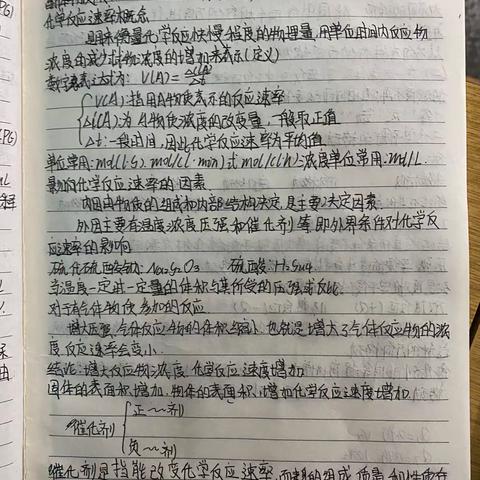 化学反应速率概念
是用来衡量化学反应快慢程度的物理量,用单位时间内反应物
浓度的减少或生成物浓度的增加来表示(定义)
数学表达式为: V(A)=
V(A):指用A物质表示的反应速率
Δc(A)为A物质浓度的改变量,一般取正值
Δt:一段时间,因此化学反应速率为平均值
单位常用:mol/(L·s) mol/(L·min)或mol/(L·h)浓度单位常用:mol/L
影响化学反应速率的因素
内因由物质的组成和内部结构决定,是主要决定因素
外因主要有温度浓度压强和催化剂等,即外界条件对化学反
应速率的影响
硫代硫酸钠:Na₂S₂O₃ 硫酸:H₂SO₄
当温度一定时一定量的体积与其所受的压强成反比
对于有气体物质参加的反应
增大压强,气体反应物的体积缩小,也就是增大了气体反应物的浓
度,反应速率会变小.
结论:增大反应物浓度,化学反应速度增加
固体的表面积增加,物体的表面积,增加化学反应速度增加.
催化剂
正~~剂
负~~剂
催化剂是指能改变化学反应速率,而本身的组成质量和性质在